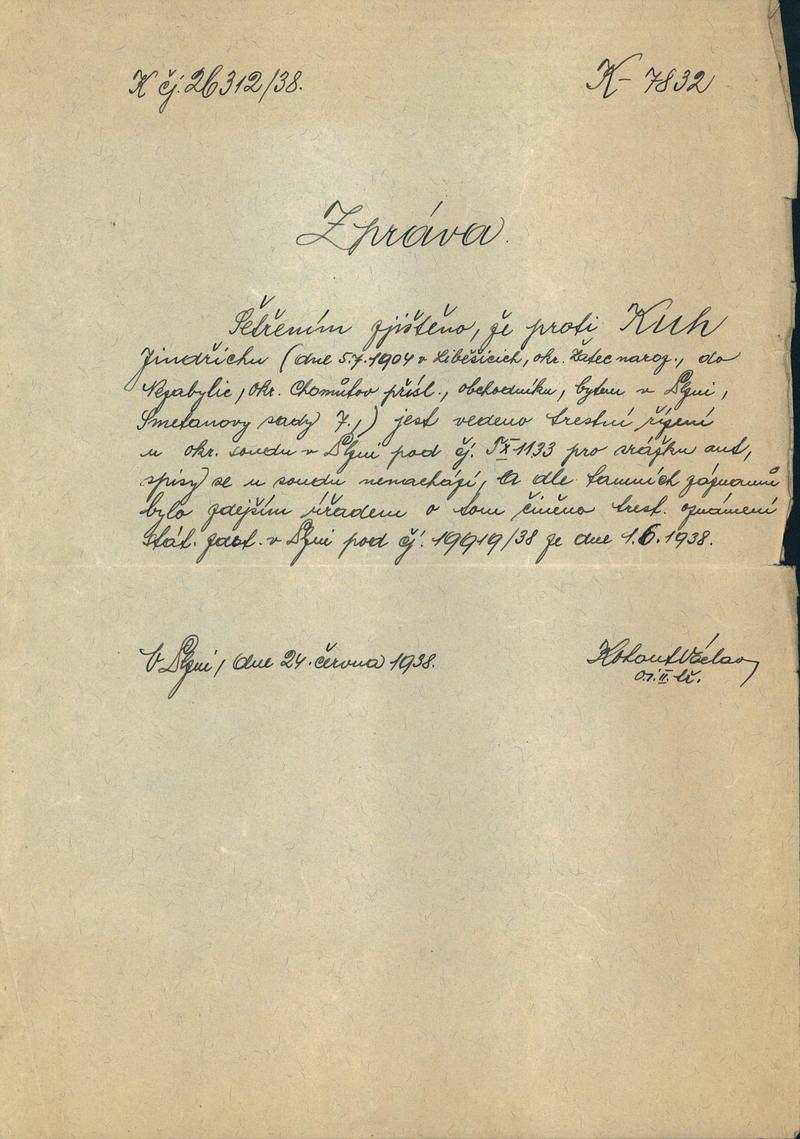 K čj. 26312/38.
K – 7832
Zpráva.
Šetřením zjištěno, že proti Kuh
Jindřichu (dne 5.7.1904 v Liběšicích, okr. Žatec naroz., do
Nezabylic, okr. Chomútov přísl., obchodníku, bytem v Plzni,
Smetanovy sady 7.,) jest vedeno trestní řízení
u okr. soudu v Plzni pod čj. TX 1133 pro srážku aut,
spisy se u soudu nenachází, a dle tamních záznamů
bylo zdejším úřadem o tom činěno trest. oznámení
Stát. zast. v Plzni pod čj. 19919/38 ze dne 1.6.1938.
V Plzni, dne 24. června 1938.
Kohout Václav
II. tř.